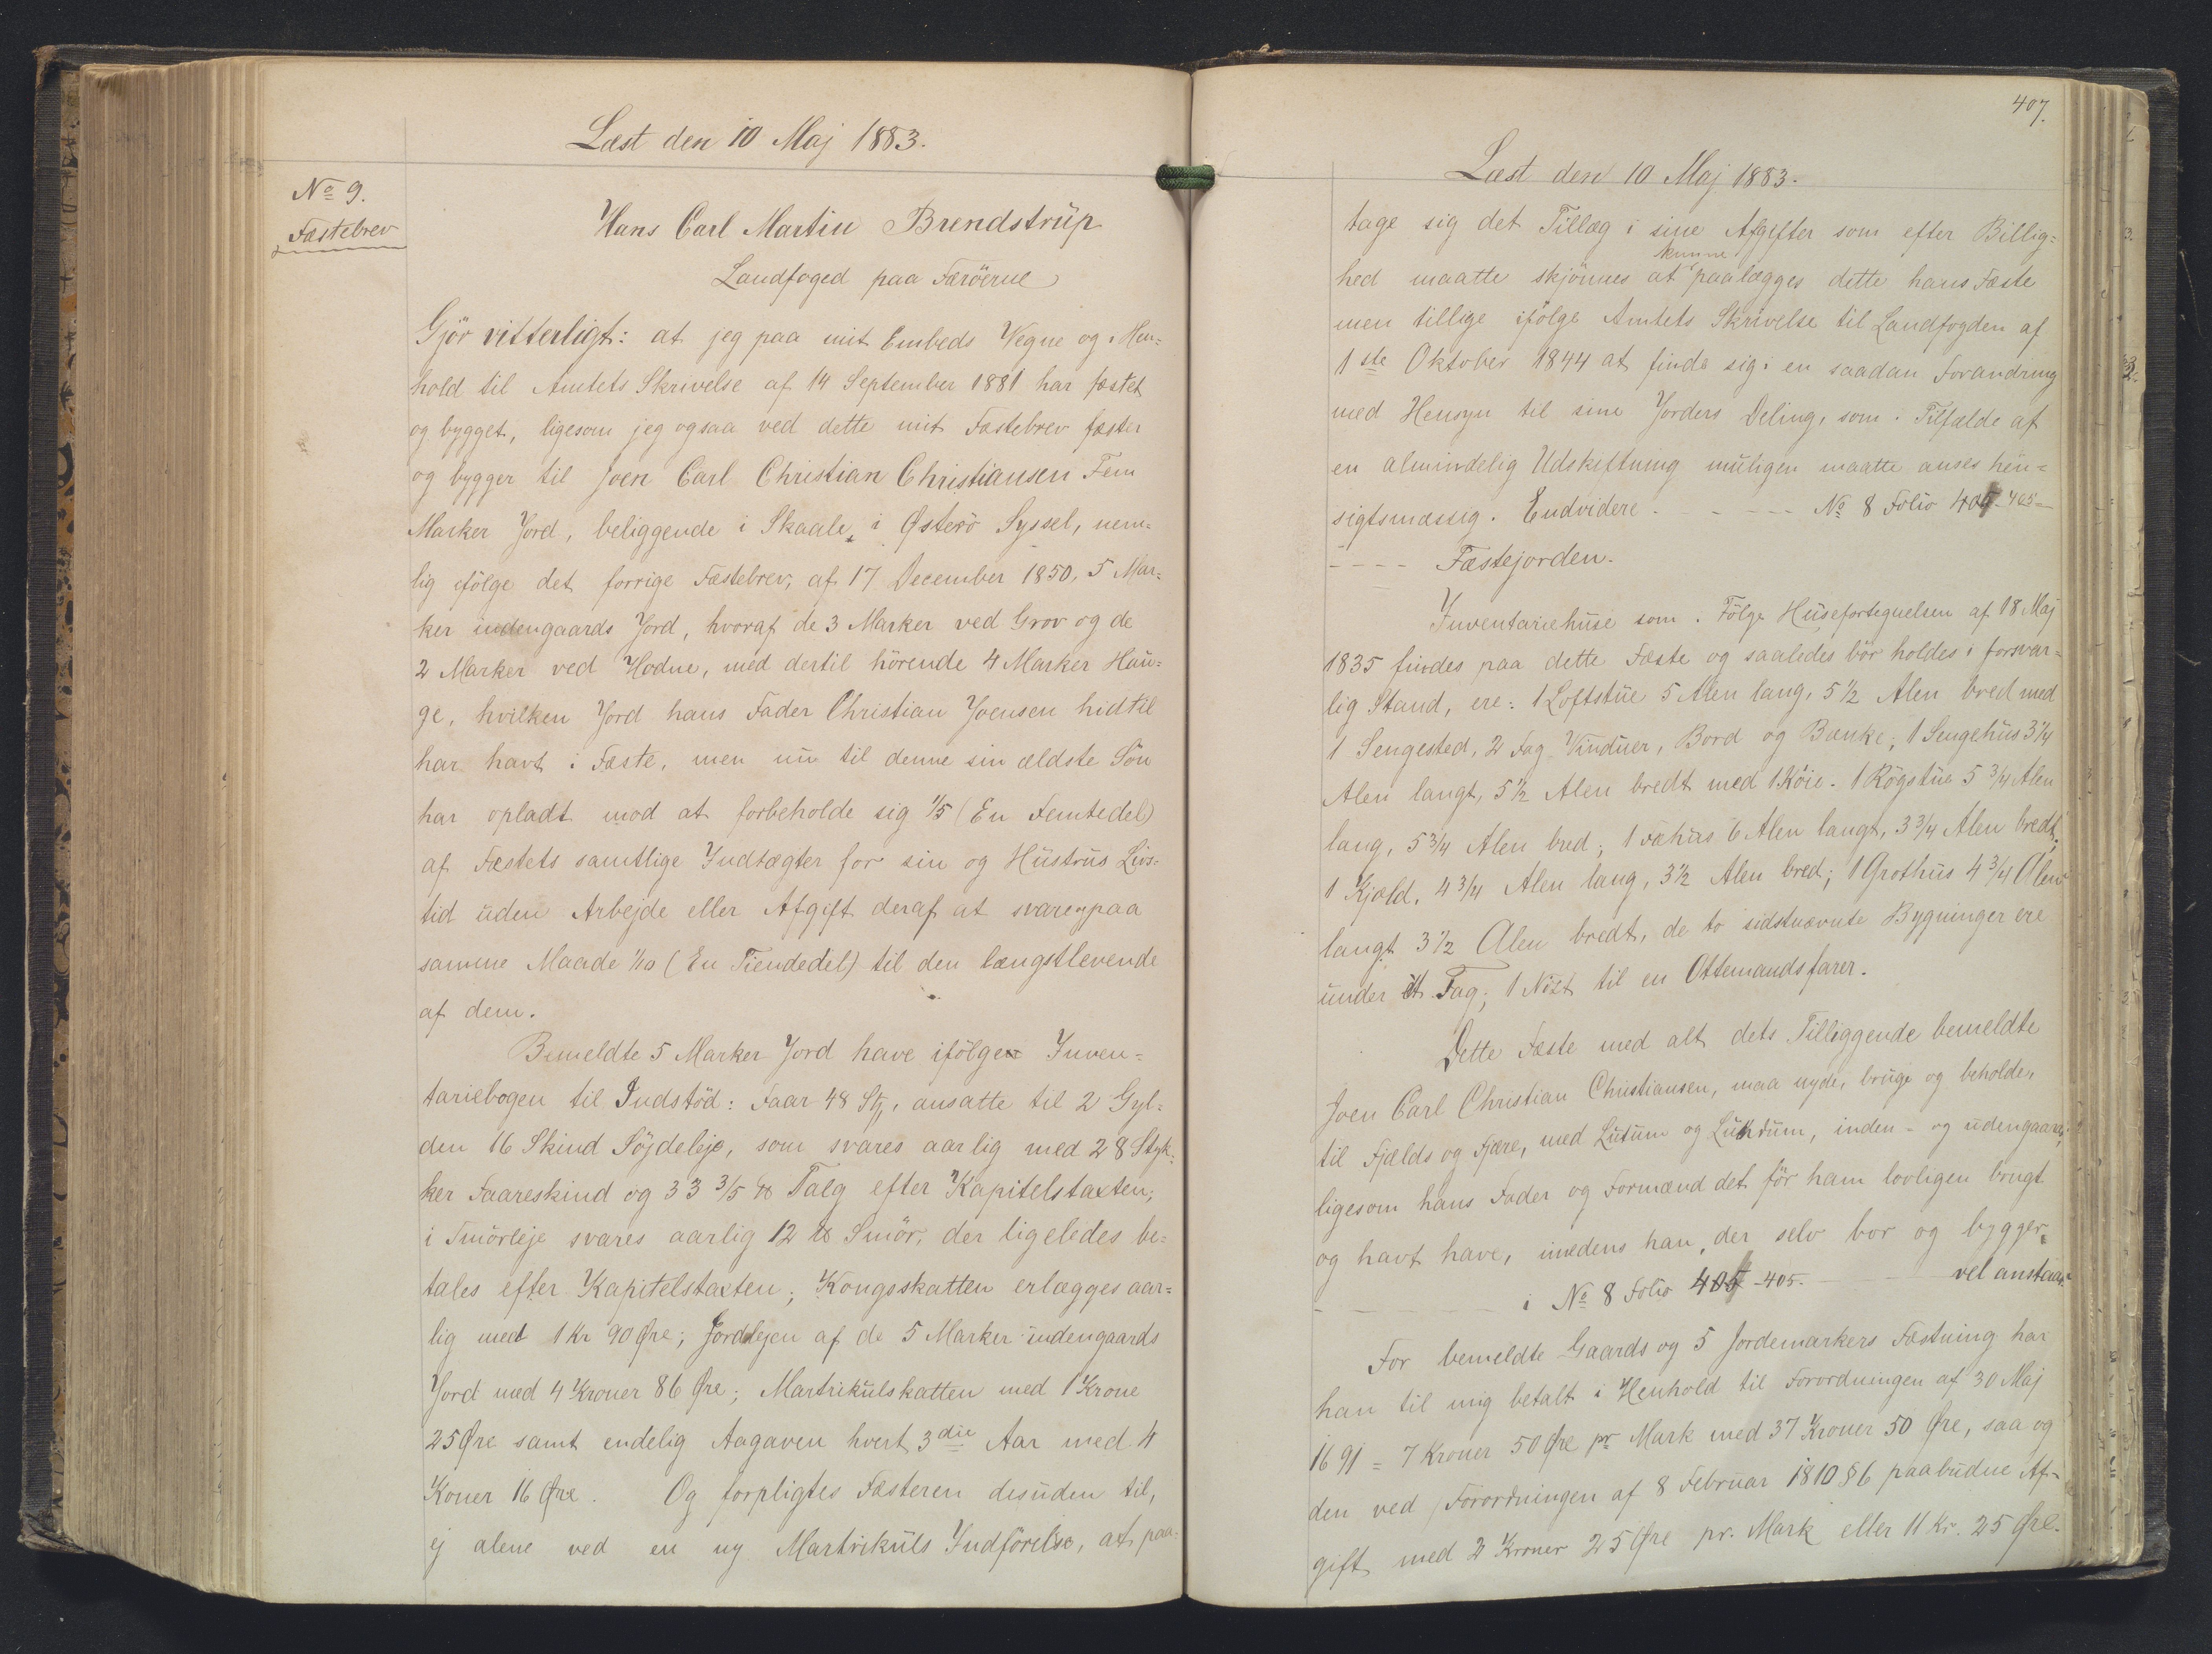 Læst den 10 Maj 1883.
No 9.
Fæstebrev
Hans Carl Martin Brendstrup
Landfoged paa Færöerne
Gjör vitterligt: at jeg paa mit Embeds Vegne og i Hen-
hold til Amtets Skrivelse af 14 September 1881 har fæstet
og bygget, ligesom jeg ogsaa ved dette mit Fæstebrev fæster
og bygger til Joen Carl Christian Christiansen Fem
Marker Jord, beliggende i Skaale, i Østerö Syssel, nem-
lig ifölge det forrige Fæstebrev, af 17 December 1850, 5 Mar-
ker indengaards Jord, hvoraf de 3 Marker ved Grov og de
2 Marker ved Hodne, med dertil hörende 4 Marker Hau-
ge, hvilken Jord hans Fader Christian Joensen hidtil
har havt i Fæste, men nu til denne sin ældste Sön
har opladt mod at forbeholde sig 1/5 (En Femtedel)
af Fæstets samtlige Indtægter for sin og Hustrus Livs-
tid uden Arbejde eller Afgift deraf at svare, paa
samme Maade 1/10 (En Tiendedel) til den længstlevende
af dem.
Bemeldte 5 Marker Jord have ifölge Inven-
tariebogen til Indstöd: Faar 48 Stk, ansatte til 2 Gyl-
den 16 Skind Söjdeleje, som svares aarlig med 28 Styk-
ker Faareskind og 33 3/5 ℔ Talg efter Kapitelstaxten;
i Smörleje svares aarlig 12 ℔ Smör, der ligeledes be-
tales efter Kapitelstaxten; Kongsskatten erlægges aar-
lig med 1 Kr 90 Øre; Jordlejen af de 5 Marker indengaards
Jord med 4 Kroner 86 Øre; Martrikulskatten med 1 Krone
25 Øre samt endelig Aagaven hvert 3die Aar med 4
Koner 16 Øre. Og forpligtes Fæsteren desuden til,
ej alene ved en ny Martrikuls Indförelse, at paa-
407.
Læst den 10 Maj 1883.
tage sig det Tillæg i sine Afgifter som efter Billig-
kunne
hed maatte skjönnes at paalægges dette hans Fæste
men tillige ifölge Amtets Skrivelse til Landfogden af
1ste Oktober 1844 at finde sig i en saadan Forandring
med Hensyn til sine Jorders Deling, som i Tilfælde af
en almindelig Udskiftning muligen maatte anses hen-
sigtsmæssig. Endvidere - - - - - No 8 Folio 405-405-
- - - - Fæstejorden.
Inventariehuse som i Fölge Husefortegnelsen af 18 Maj
1835 findes paa dette Fæste og saaledes bör holdes i forsvar-
lig Stand, ere: 1 Loftstue 5 Alen lang, 5 1/2 Alen bred med
1 Sengested, 2 Fag Vinduer, Bord og Bænke; 1 Sengehus 3 1/4
Alen langt, 5 1/2 Alen bredt med 1 Köie. 1 Rögstue 5 3/4 Alen
lang, 5 3/4 Alen bred; 1 Fæhus 6 Alen langt, 3 3/4 Alen bredt;
1 Kjæld, 4 3/4 Alen lang, 3 1/2 Alen bred; 1 Grothus 4 3/4 Alen
langt 3 1/2 Alen bredt, de to sidstnævnte Bygninger ere
under et Tag; 1 Nöst til en Ottemandsfarer.
Dette Fæste med alt dets Tilliggende bemeldte
Joen Carl Christian Christiansen, maa nyde, bruge og beholde,
til Fjælds og Fjære, med Lutum og Lundum, inden- og udengaards,
ligesom hans Fader og Formænd det för ham lovligen brugt
og havt have, imedens han, der selv bor og bygger,
- - - - i No 8 Folio 405-405. - - - vel anstaar.
For bemeldte Gaards og 5 Jordemarkers Fæstning har
han til mig betalt i Henhold til Forordningen af 30 Maj
1691 = 7 Kroner 50 Øre pr Mark med 37 Kroner 50 Øre, saa og
den ved Forordningen af 8 Februar 1810 § 6 paabudne Af-
gift med 2 Kroner 25 Øre pr. Mark eller 11 Kr. 25 Øre.